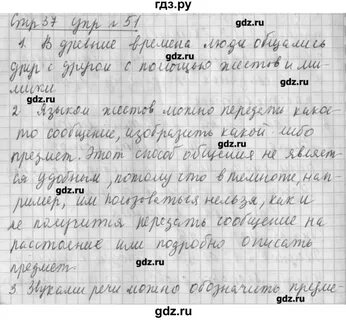 Стр 37 упр № 51
1. В древние времена люди общались
друг с другом с помощью жестов и ми-
мики.
2 Языком жестов можно передать какое-
то сообщение, изобразить какой-либо
предмет. Этот способ общения не являет-
ся удобным, потому что в темноте, нап-
ример, им пользоваться нельзя, как и
не получится передать сообщение на
расстояние или подробно описать
предмет.
3 Звуками речи можно обозначить предме-
gdz.ru
gdz.ru
gdz.ru
gdz.ru
gdz.ru
gdz.ru
gdz.ru
gdz.ru